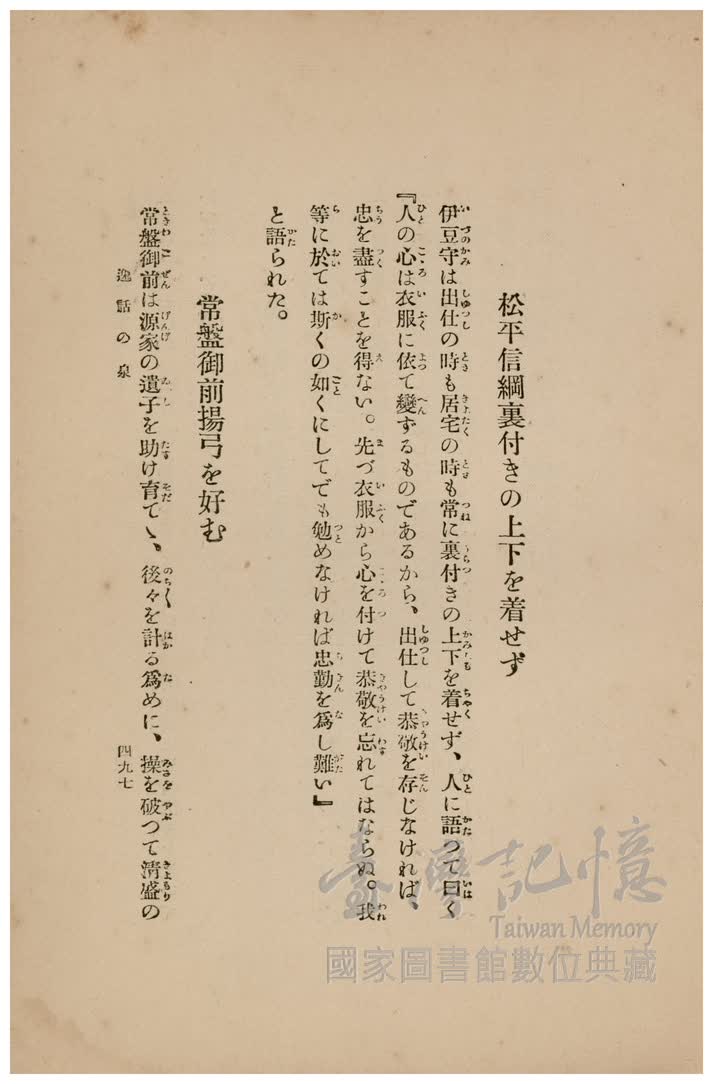 松平信綱裏付きの上下を着せず
伊豆守は出仕の時も居宅の時も常に裏付きの上下を着せず、人に語つて曰く
『人の心は衣服に依て變ずるものであるから、出仕して恭敬を存じなければ、
忠を盡すことを得ない。先づ衣服から心を付けて恭敬を忘れてはならぬ。我
等に於ては斯くの如くにしてでも勉めなければ忠勤を爲し難い』
と語られた。
常盤御前揚弓を好む
常盤御前は源家の遺子を助け育てゝ、後々を計る爲めに、操を破つて淸盛の
逸話の泉
四九七
臺灣記憶
Taiwan Memory
國家圖書館數位典藏